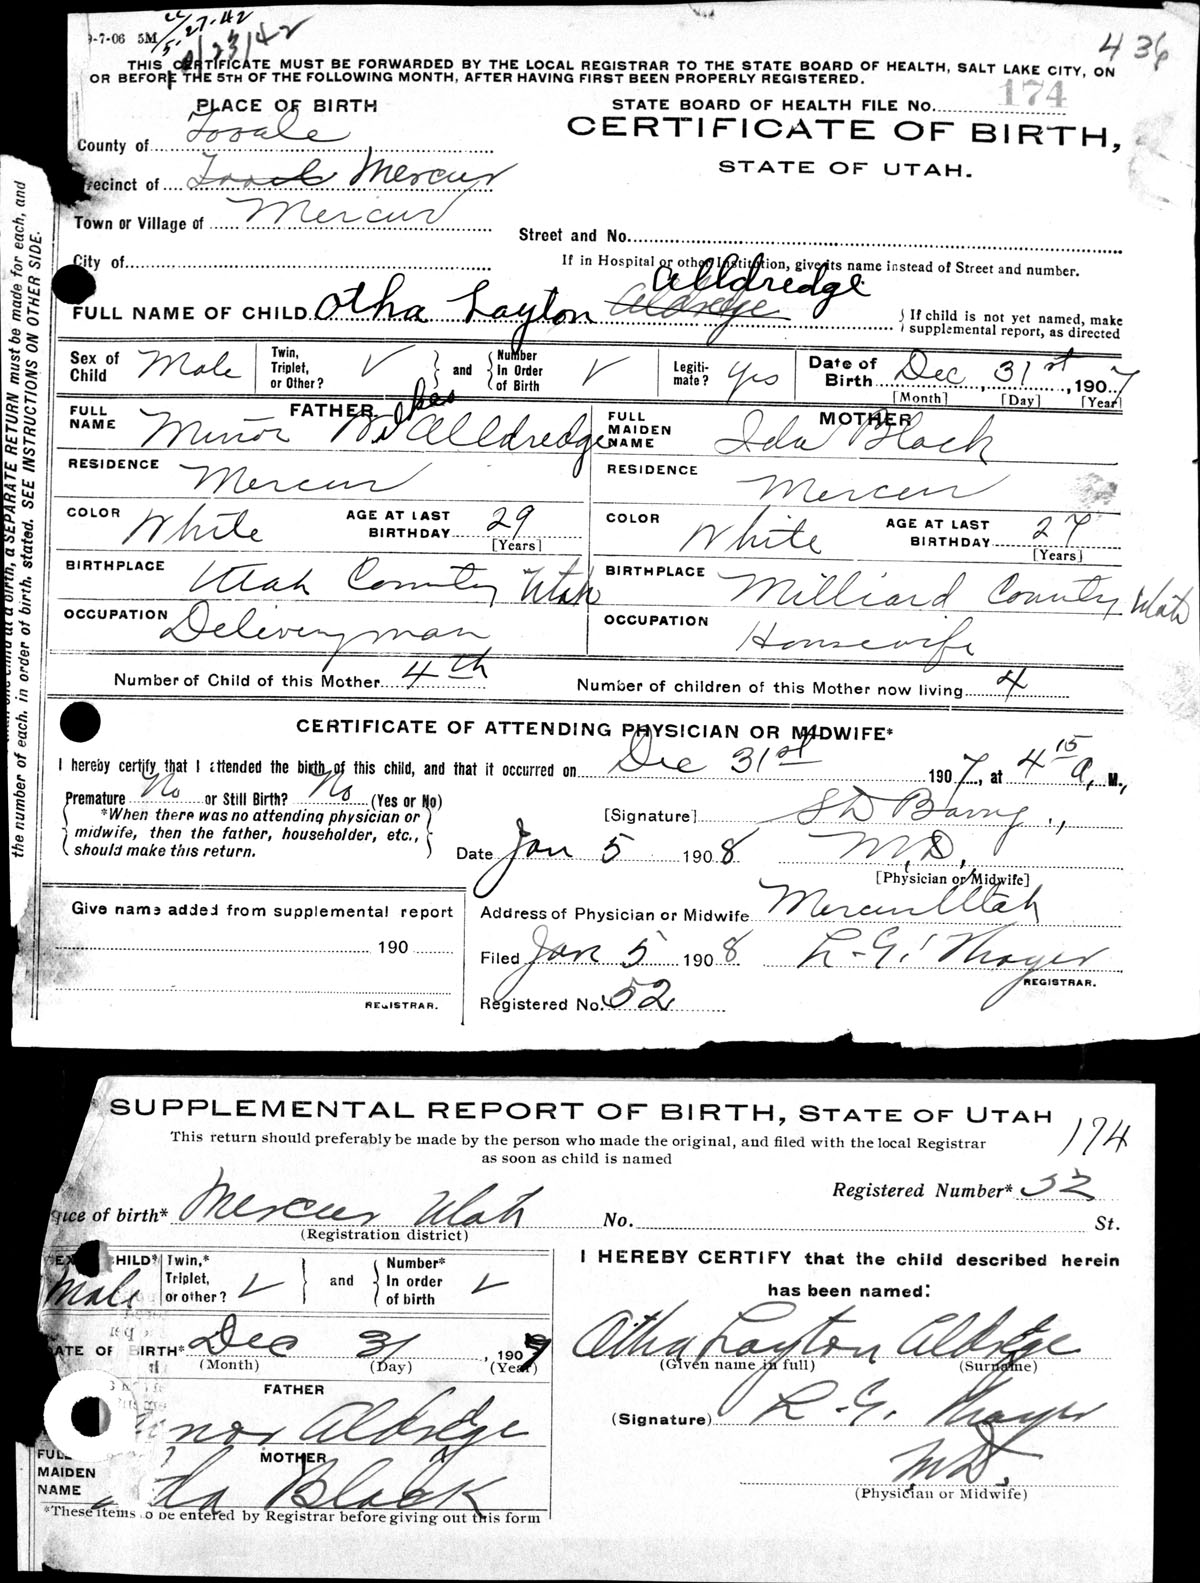 9-7-06 5M
5-27-42
10/23/42
436
THIS CERTIFICATE MUST BE FORWARDED BY THE LOCAL REGISTRAR TO THE STATE BOARD OF HEALTH, SALT LAKE CITY, ON
OR BEFORE THE 5TH OF THE FOLLOWING MONTH, AFTER HAVING FIRST BEEN PROPERLY REGISTERED.
PLACE OF BIRTH
STATE BOARD OF HEALTH FILE No. 174
CERTIFICATE OF BIRTH,
STATE OF UTAH.
County of Tooele
Precinct of Tooele Mercur
Town or Village of Mercur
Street and No.
City of
If in Hospital or other Institution, give its name instead of Street and number.
Alldredge
FULL NAME OF CHILD Otha Layton Aldredge
If child is not yet named, make
supplemental report, as directed
Sex of Child Male
Twin, Triplet, or Other? ✓ and Number In Order of Birth ✓
Legitimate? yes
Date of Birth Dec, 31st, 1907
[Month] [Day] [Year]
FATHER
FULL NAME Minor Wilkes Alldredge
MOTHER
FULL MAIDEN NAME Ida Black
RESIDENCE Mercur
RESIDENCE Mercur
COLOR White AGE AT LAST BIRTHDAY 29 [Years]
COLOR White AGE AT LAST BIRTHDAY 27 [Years]
BIRTHPLACE Utah County Utah
BIRTHPLACE Milliard County Utah
OCCUPATION Deliveryman
OCCUPATION Housewife
Number of Child of this Mother 4th
Number of children of this Mother now living 4
CERTIFICATE OF ATTENDING PHYSICIAN OR MIDWIFE*
I hereby certify that I attended the birth of this child, and that it occurred on Dec 31st 1907, at 4 15 a, M.,
Premature No or Still Birth? No (Yes or No)
*When there was no attending physician or
midwife, then the father, householder, etc.,
should make this return.
[Signature]
M.D.
[Physician or Midwife]
Date Jan 5 1908
Give name added from supplemental report
190
REGISTRAR.
Address of Physician or Midwife Mercur Utah
Filed Jan 5 1908 L. G. Thayer
REGISTRAR.
Registered No. 52
the number of each, in order of birth, stated. SEE INSTRUCTIONS ON OTHER SIDE.
child at a birth, a SEPARATE RETURN must be made for each, and
SUPPLEMENTAL REPORT OF BIRTH, STATE OF UTAH
174
This return should preferably be made by the person who made the original, and filed with the local Registrar
as soon as child is named
Registered Number* 52
ace of birth* Mercur Utah
(Registration district)
No. St.
SEX CHILD* Male
Twin,* Triplet, or other? ✓ and Number* In order of birth ✓
I HEREBY CERTIFY that the child described herein
has been named:
Otha Layton Aldrege
(Given name in full) (Surname)
ATE OF BIRTH* Dec 31, 1907
(Month) (Day) (Year)
FATHER
inor Aldrege
(Signature) L. G. Thayer
M.D.
(Physician or Midwife)
FULL MAIDEN NAME
MOTHER
Ida Black
*These items to be entered by Registrar before giving out this form